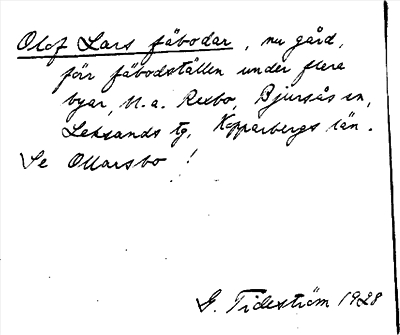 Olof Lars fäbodar, nu gård,
förr fäbodställen under flera
byar, bl. a. Rexbo, Bjursås sn,
Leksands tg, Kopparbergs län.
Se Ollarsbo!
G. Tideström 1928